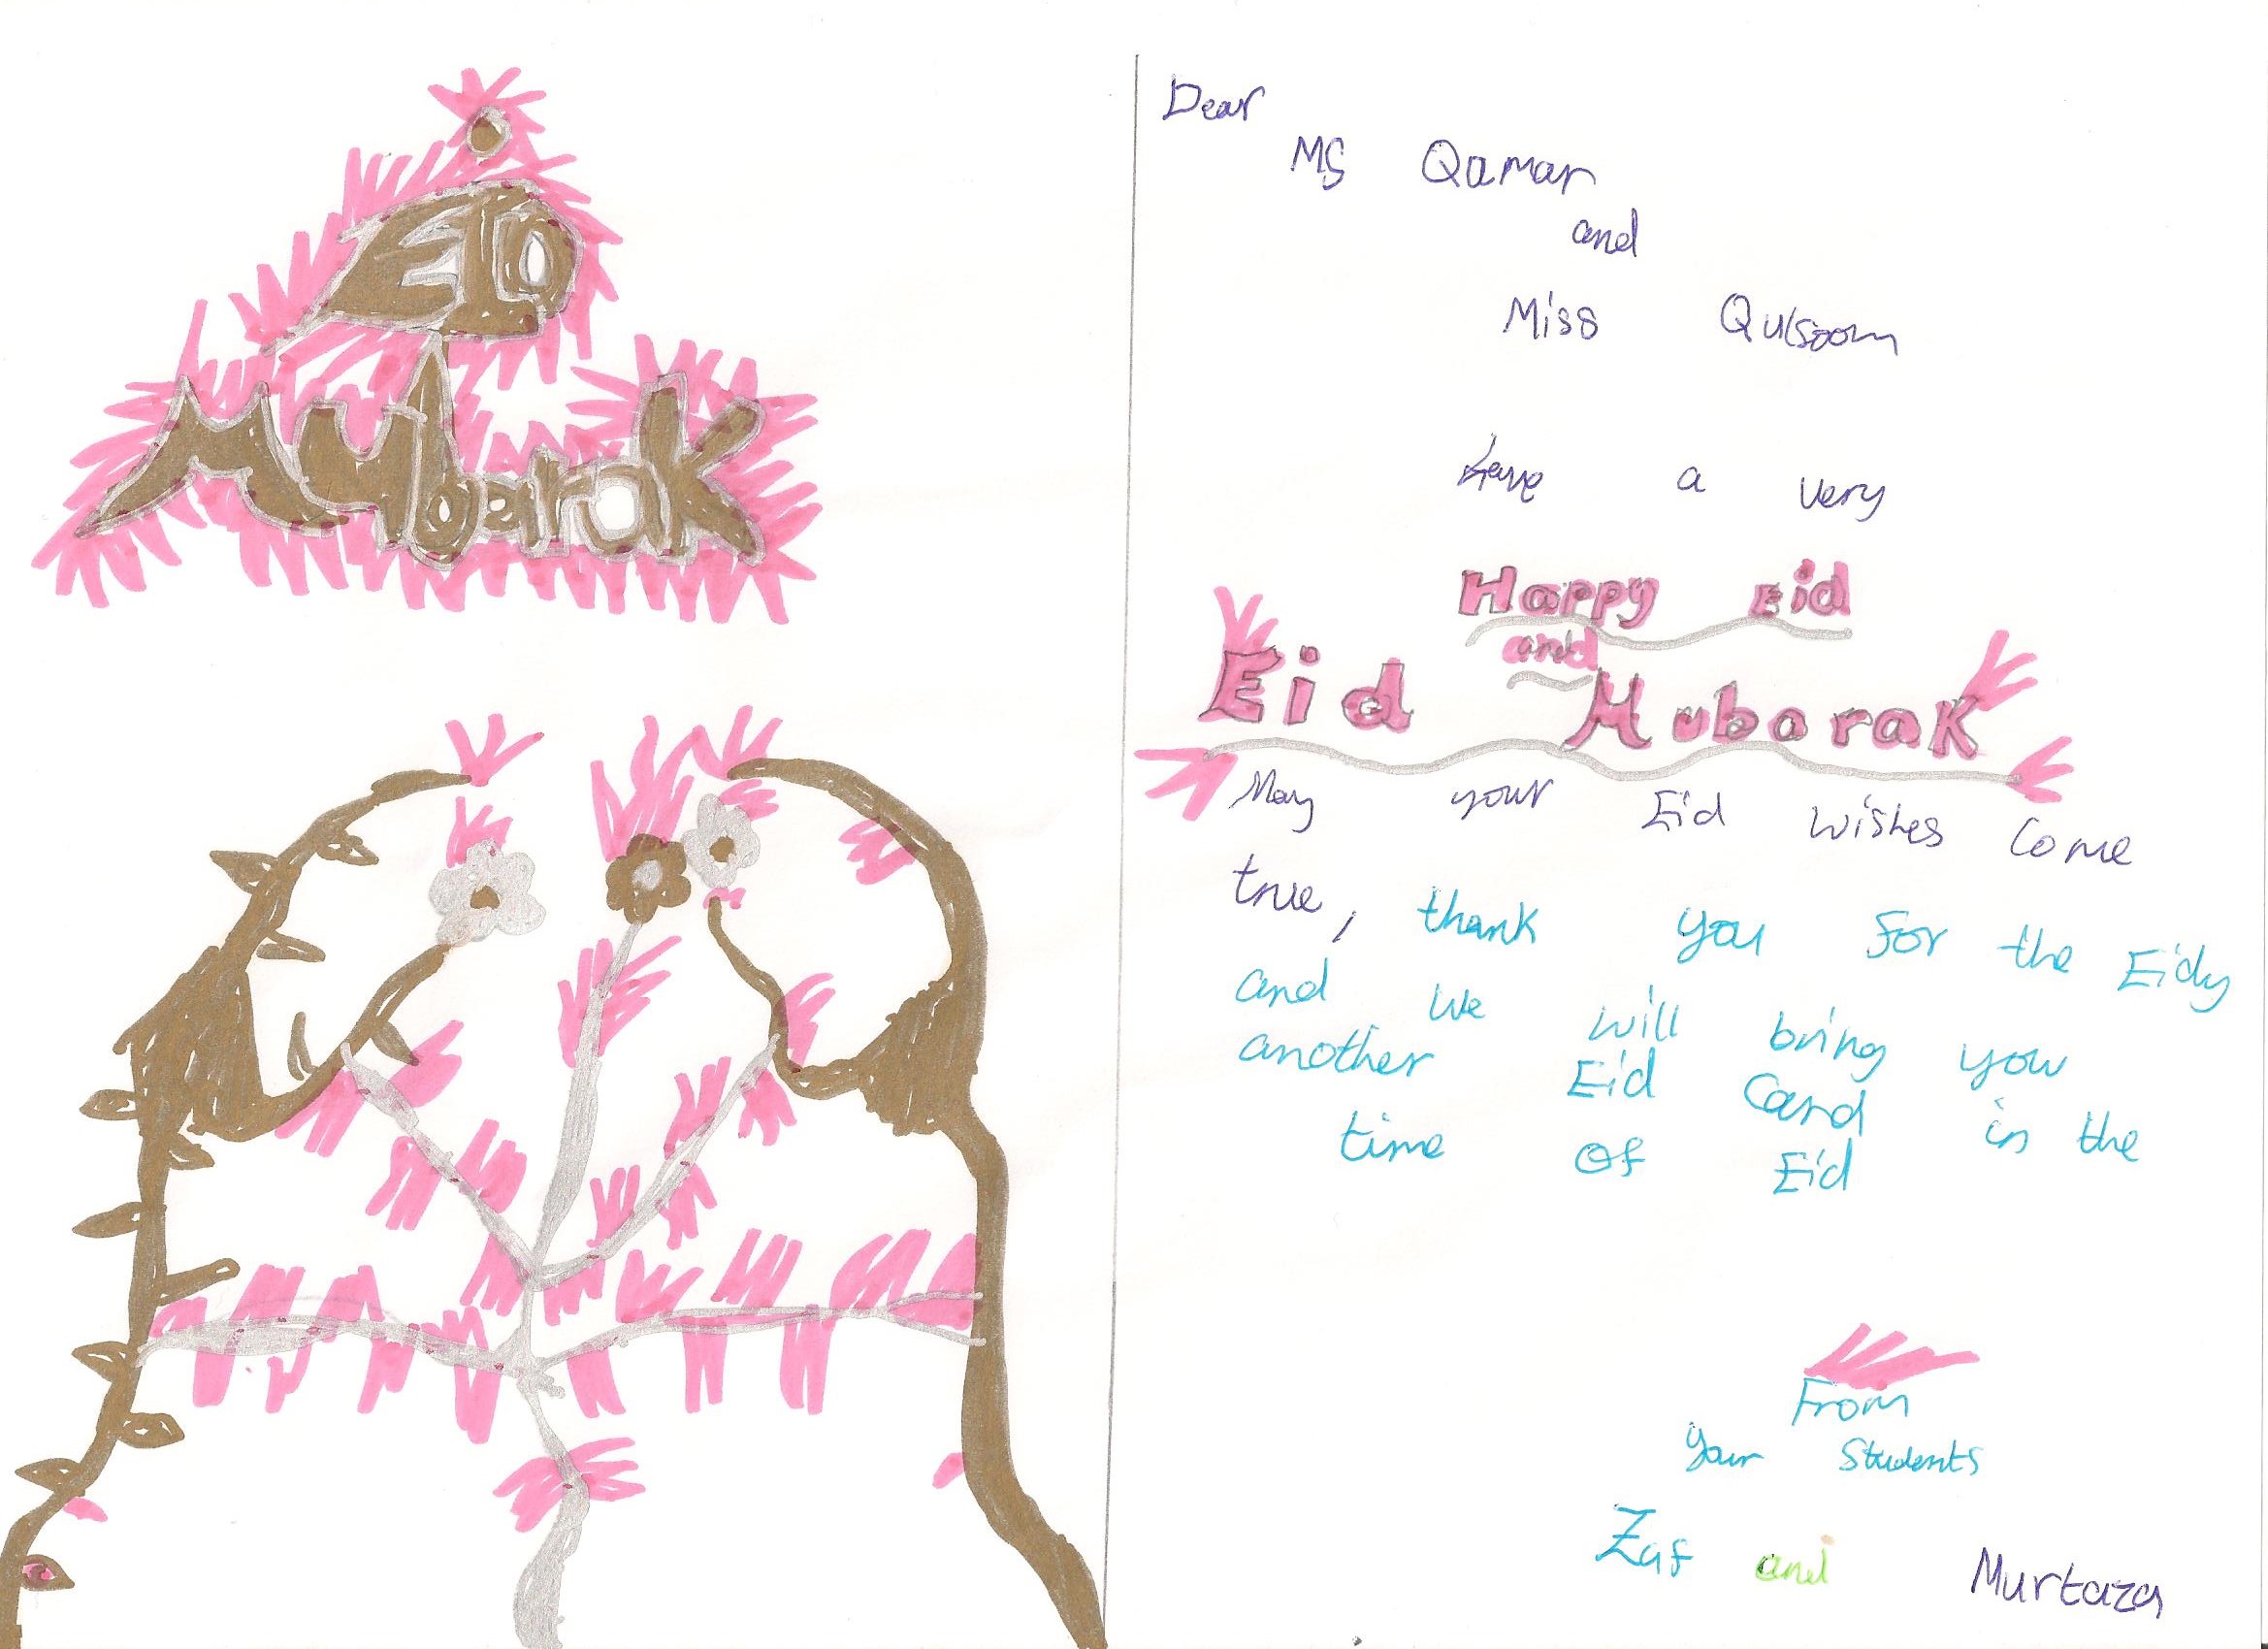 EID
Mubarak
Dear
MS Qamar
and
Miss Qulsoom
have a very
Happy Eid
and
Eid Mubarak
May your Eid wishes come
true, thank you for the Eidy
and we will bring you
another Eid Card in the
time of Eid
From
your students
Zaf and Murtaza